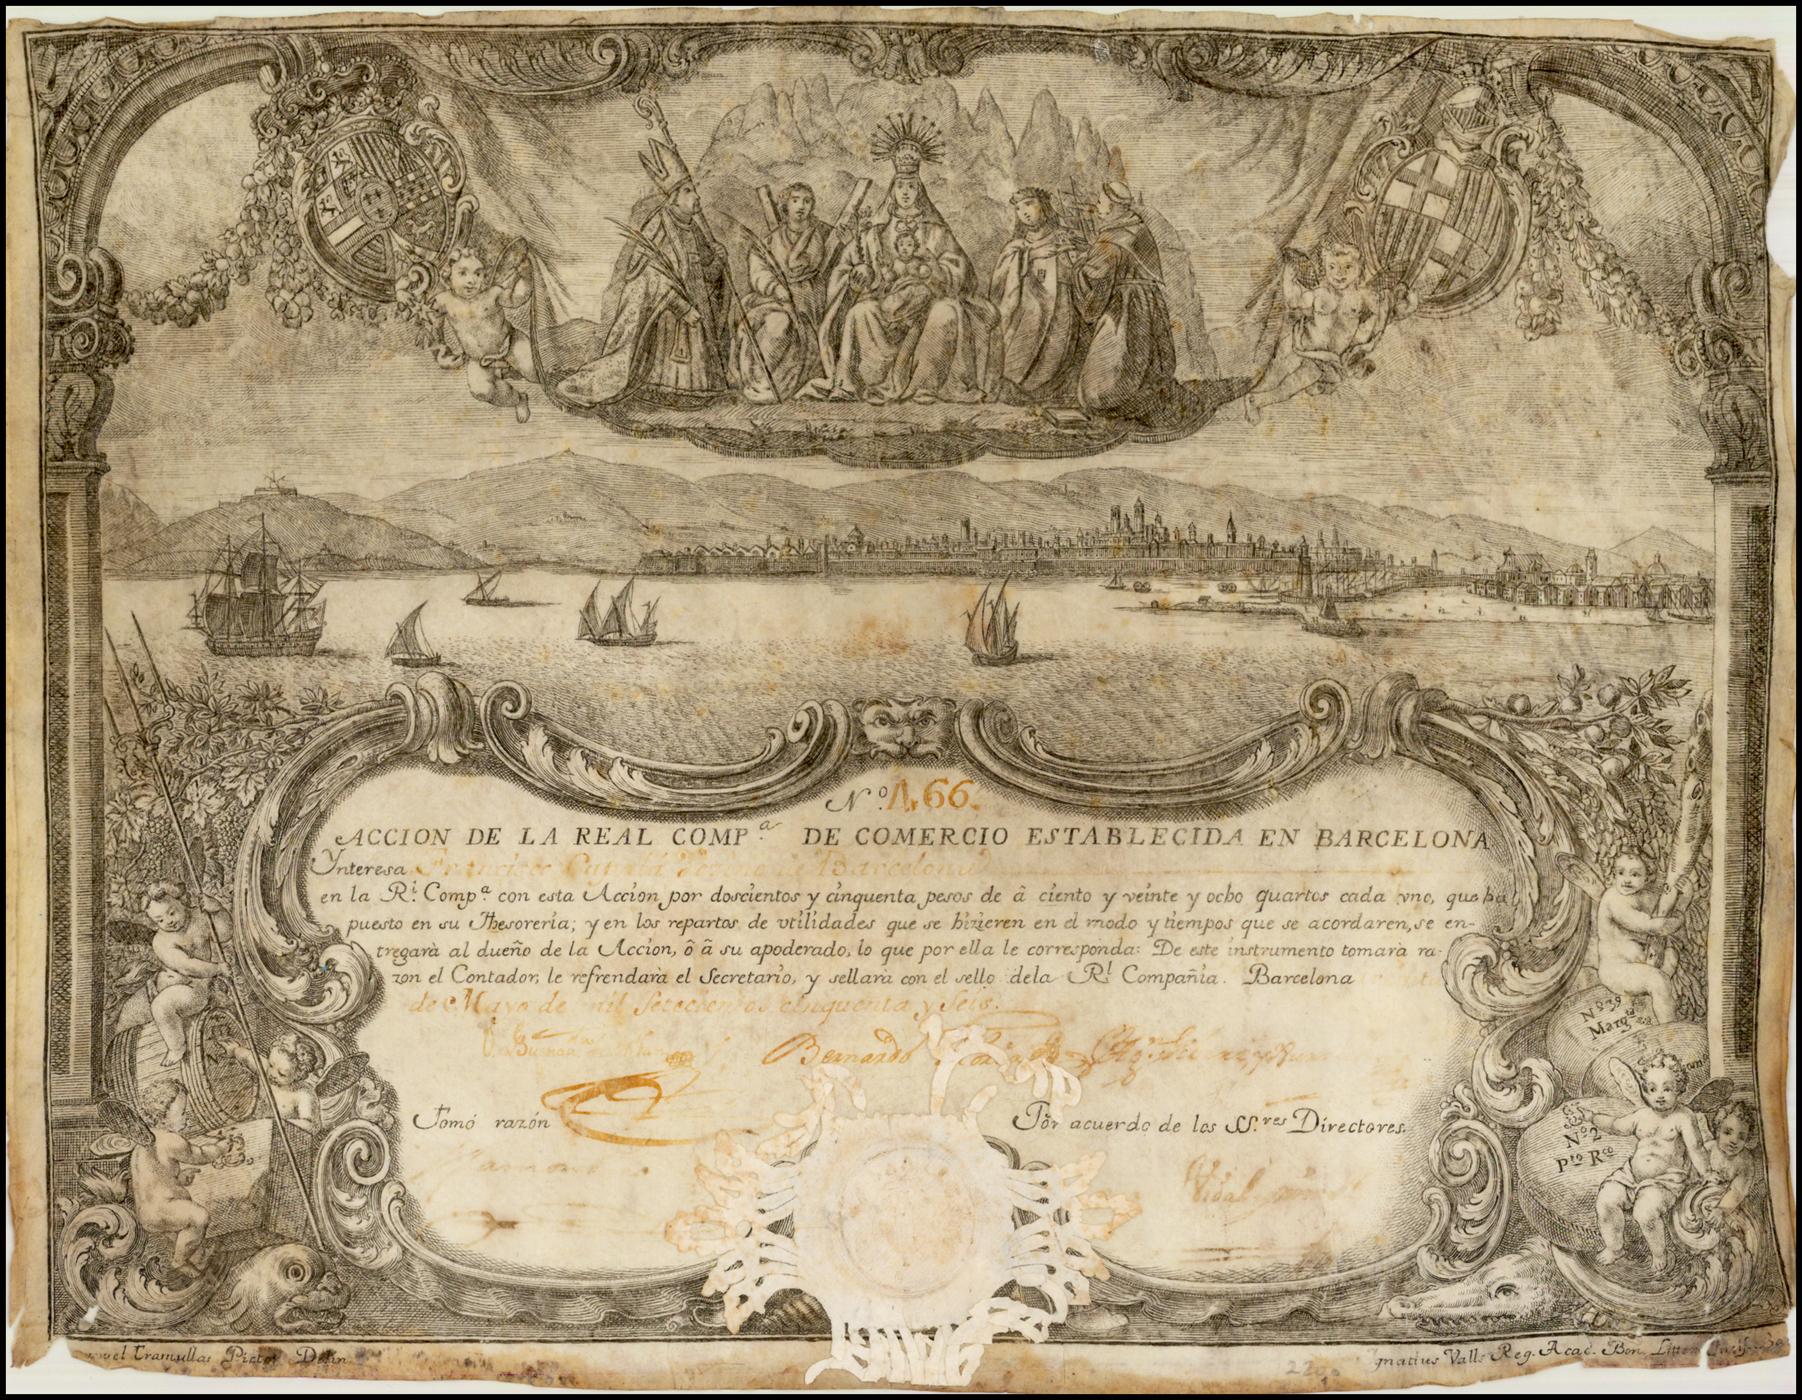 N.º 1,66.
ACCION DE LA REAL COMP.ª DE COMERCIO ESTABLECIDA EN BARCELONA
Ynteresa Francisco de Barcelona
en la R.l Comp.ª con esta Accion por doscientos y cinquenta pesos de â ciento y veinte y ocho quartos cada vno, que ha
puesto en su Thesoreria; y en los repartos de vtilidades que se hizieren en el modo y tiempos que se acordaren, se en-
tregarà al dueño de la Accion, ô â su apoderado, lo que por ella le corresponda: De este instrumento tomarà ra-
zon el Contador, le refrendarà el Secretario, y sellarà con el sello dela R.l Compañia. Barcelona
de Mayo de mil setecientos cinquenta y seis.
Bernardo
Tomó razón
Por acuerdo de los SS.res Directores.
Vidal
Nº 39
Marg.ta
Nº 2
Pto Rco
Tramullas Pictor Delin
Ignatius Valls Reg. Acad. Bon. Litter.